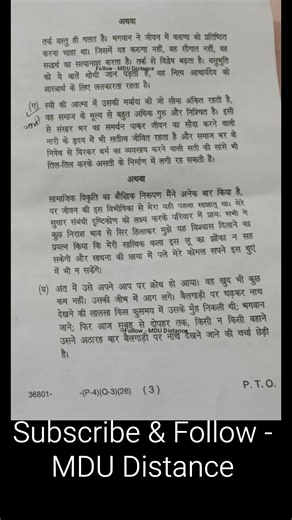 अथवा
तर्क वस्तु ही गलत है। भगवान ने जीवन में करुणा को प्रतिष्ठित
करना चाहा था। जिसमें वह करुणा नहीं, वह सौगात नहीं, वह
सद्धर्म का सत्यानाश करता है। तर्क से विद्वेष बढ़ता है। वसुभूति
Follow - MDU Distance
को ये बातें थोथी जान पड़ती हैं, वह नित्य आचार्यदेव को
शास्त्रार्थ के लिए ललकारता रहता है।
(ग) स्त्री की आत्मा में उसकी मर्यादा की जो सीमा अंकित रहती है,
वह समाज के मूल्य से बहुत अधिक गुरु और निश्चित है। इसी
से संसार भर का समर्थन पाकर जीवन का सौदा करने वाली
नारी के हृदय में भी सतीत्व जीवित रहता है और समाज भर के
निषेध से घिरकर धर्म का व्यवसाय करने वाली सती की सांसें भी
तिल-तिल करके असती के निर्माण में लगी रह सकती हैं।
अथवा
सामाजिक विकृति का बौद्धिक निरूपण मैंने अनेक बार किया है,
पर जीवन की इस विभीषिका से मेरा यही पहला साक्षात् था। मेरे
सुधार संबंधी दृष्टिकोण को लक्ष्य करके परिवार में प्रायः सभी ने
कुछ निराश भाव से सिर हिलाकर मुझे यह विश्वास दिलाने का
प्रयत्न किया कि मेरी सात्विक कला इस लू का झोंका न सह
सकेगी और साधना की छाया में पले मेरे कोमल सपने इस धुएं
में भी न सकेंगे।
(घ) अंत में उसे अपने आप पर क्रोध हो आया। वह खुद भी कुछ
कम नहीं। उसकी जीभ में आग लगे। बैलगाड़ी पर चढ़कर नाच
देखने की लालसा किस कुसमय में उसके मुँह निकली थी; भगवान
Follow - MDU Distance
जानें; फिर आज सुबह से दोपहर तक, किसी न किसी बहाने
उसने अठारह बार बैलगाड़ी पर नाच देखने जाने की चर्चा छेड़ी
है।
36801- -(P-4)(Q-3)(26) (3) P.T.O.
Subscribe & Follow -
MDU Distance